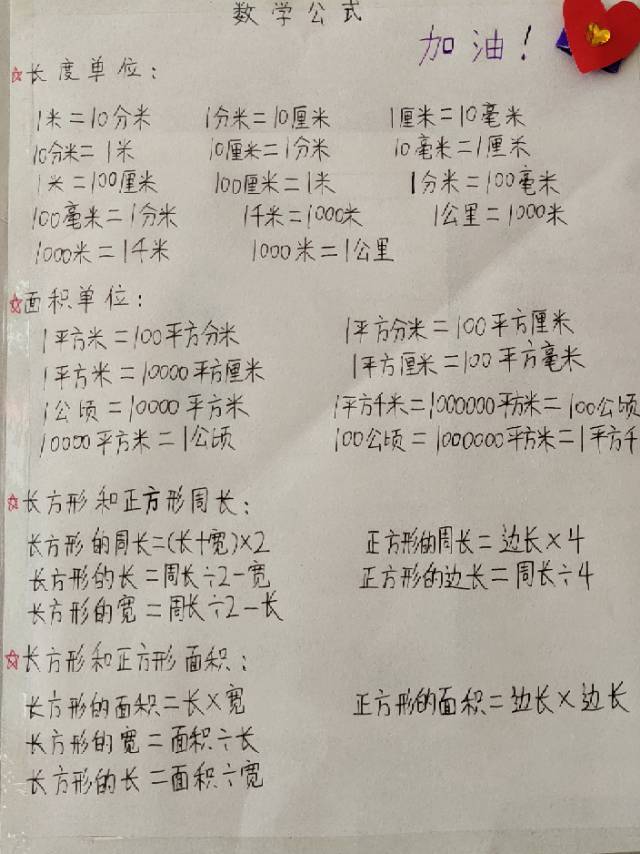 数学公式
加油!
☆长度单位:
1米=10分米 1分米=10厘米 1厘米=10毫米
10分米=1米 10厘米=1分米 10毫米=1厘米
1米=100厘米 100厘米=1米 1分米=100毫米
100毫米=1分米 1千米=1000米 1公里=1000米
1000米=1千米 1000米=1公里
☆面积单位:
1平方米=100平方分米 1平方分米=100平方厘米
1平方米=10000平方厘米 1平方厘米=100平方毫米
1公顷=10000平方米 1平方千米=1000000平方米=100公顷
10000平方米=1公顷 100公顷=1000000平方米=1平方千
☆长方形和正方形周长:
长方形的周长=(长+宽)×2 正方形的周长=边长×4
长方形的长=周长÷2-宽 正方形的边长=周长÷4
长方形的宽=周长÷2-长
☆长方形和正方形面积:
长方形的面积=长×宽 正方形的面积=边长×边长
长方形的宽=面积÷长
长方形的长=面积÷宽